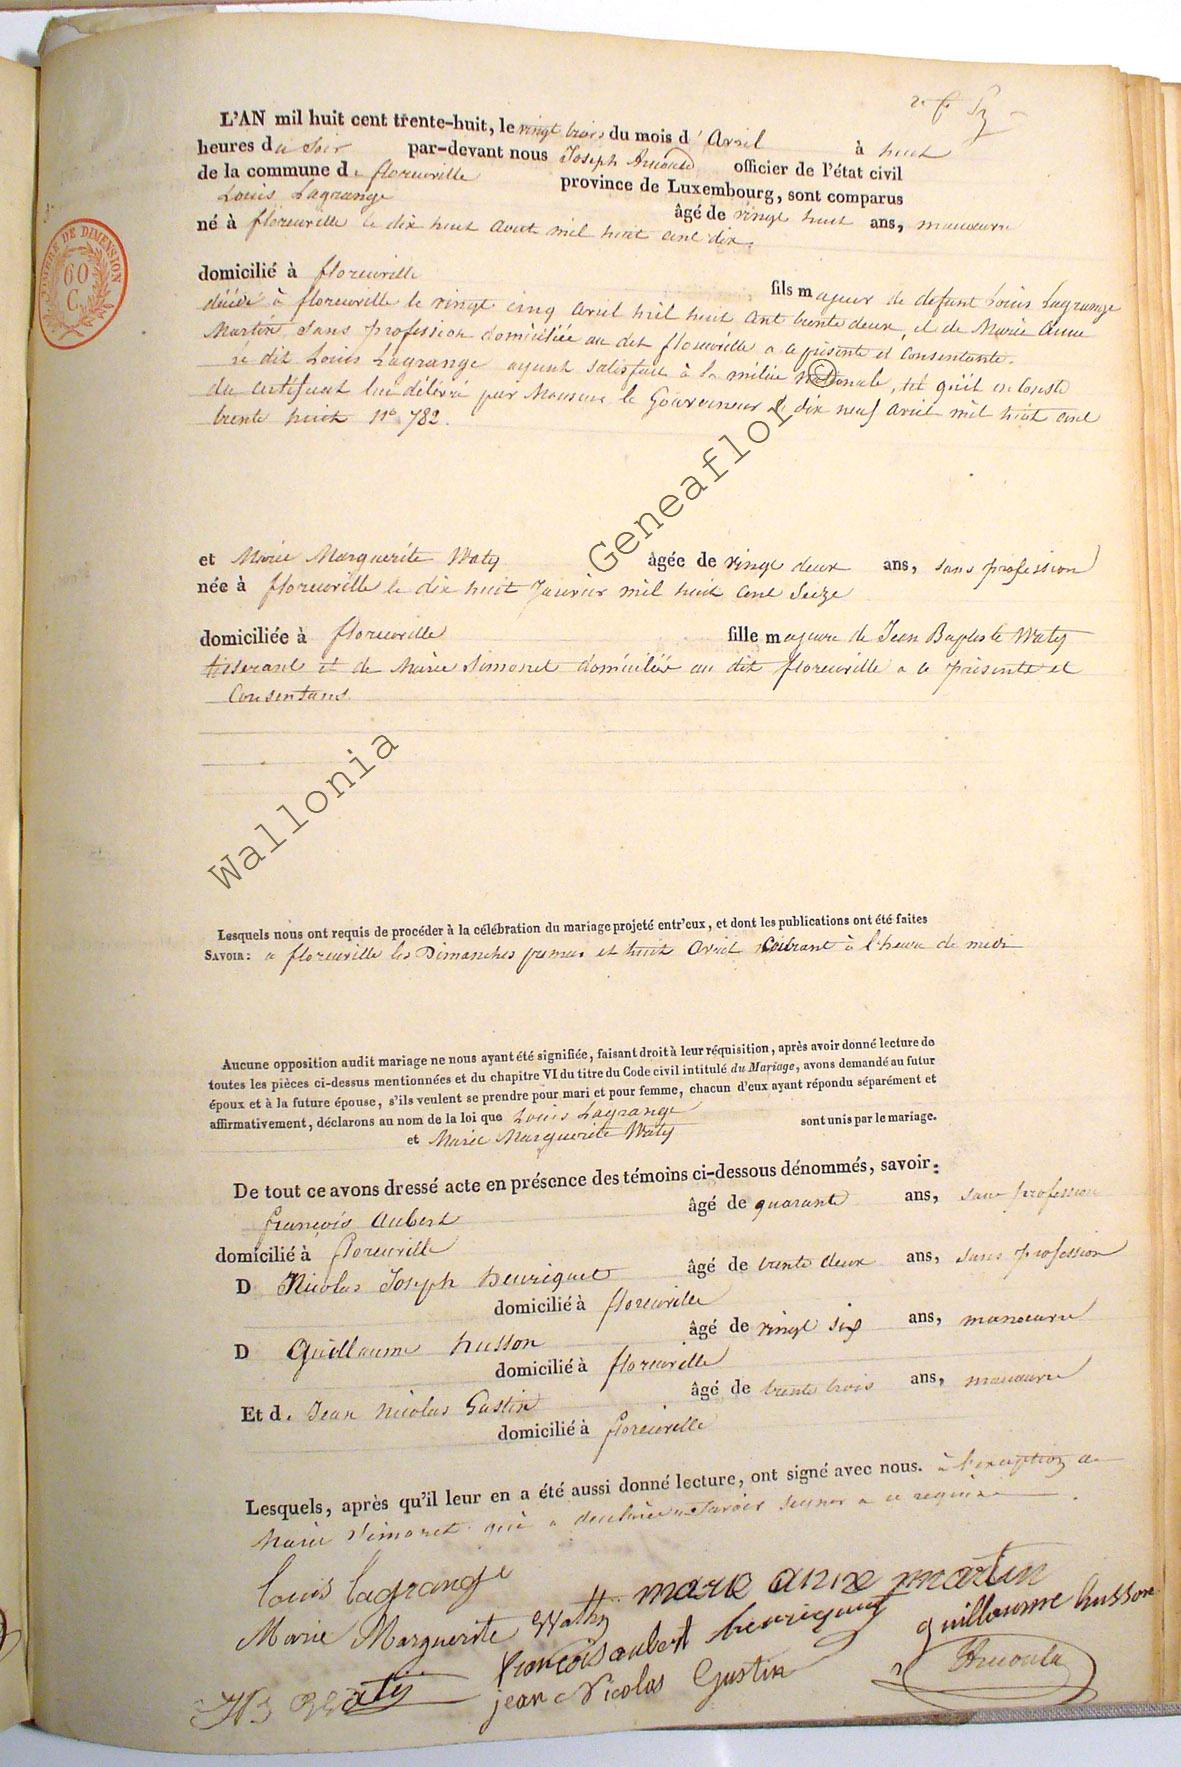 L'AN mil huit cent trente-huit, le vingt trois du mois d'Avril à huit
heures du Soir par-devant nous Joseph Arnould officier de l'état civil
de la commune de florenville province de Luxembourg, sont comparus
Louis Lagrange âgé de vingt huit ans, manoeuvre
né à florenville le dix huit Aout mil huit cent dix.
TIMBRE DE DIMENSION
60
C.
domicilié à florenville fils majeur de defunt Louis Lagrange
décédé à florenville le vingt cinq avril mil huit cent trente deux, et de Marie Anne
Martin, sans profession domiciliée au dit florenville a ce présente et Consentante.
le dit Louis Lagrange ayant satisfait à la milice Nationale, tel qu'il en Conste
du certificat lui délivré par Monsieur le Gouverneur le dix neuf avril mil huit cent
trente huit n° 782.
© Geneaflor
et Marie Marguerite Waty âgée de vingt deux ans, sans profession
née à florenville le dix huit Janvier mil huit cent Seize
domiciliée à florenville fille majeure de Jean Baptiste Waty
tisserant et de Marie Simonet domiciliés au dit florenville a ce présents et
Consentans.
Wallonia
Lesquels nous ont requis de procéder à la célébration du mariage projeté entr'eux, et dont les publications ont été faites
SAVOIR: a florenville les Dimanches premier et huit avril Courant à l'heure de midi
Aucune opposition audit mariage ne nous ayant été signifiée, faisant droit à leur réquisition, après avoir donné lecture de
toutes les pièces ci-dessus mentionnées et du chapitre VI du titre du Code civil intitulé du Mariage, avons demandé au futur
époux et à la future épouse, s'ils veulent se prendre pour mari et pour femme, chacun d'eux ayant répondu séparément et
affirmativement, déclarons au nom de la loi que Louis Lagrange
et Marie Marguerite Waty sont unis par le mariage.
De tout ce avons dressé acte en présence des témoins ci-dessous dénommés, savoir:
françois aubert âgé de quarante ans, sans profession
domicilié à florenville
D Nicolas Joseph henriquet âgé de trente deux ans, sans profession
domicilié à florenville
D Guillaume husson âgé de vingt six ans, manoeuvre
domicilié à florenville
Et de Jean Nicolas Gustin âgé de trente trois ans, manoeuvre
domicilié à florenville
Lesquels, après qu'il leur en a été aussi donné lecture, ont signé avec nous. à l'exception de
Marie Simonet qui a déclaré ne savoir signer a ce requise
louis lagrange
Marie Marguerite Wathy marie anne martin
francois aubert henriquet guillaume husson
JB Waty jean Nicolas Gustin JArnould